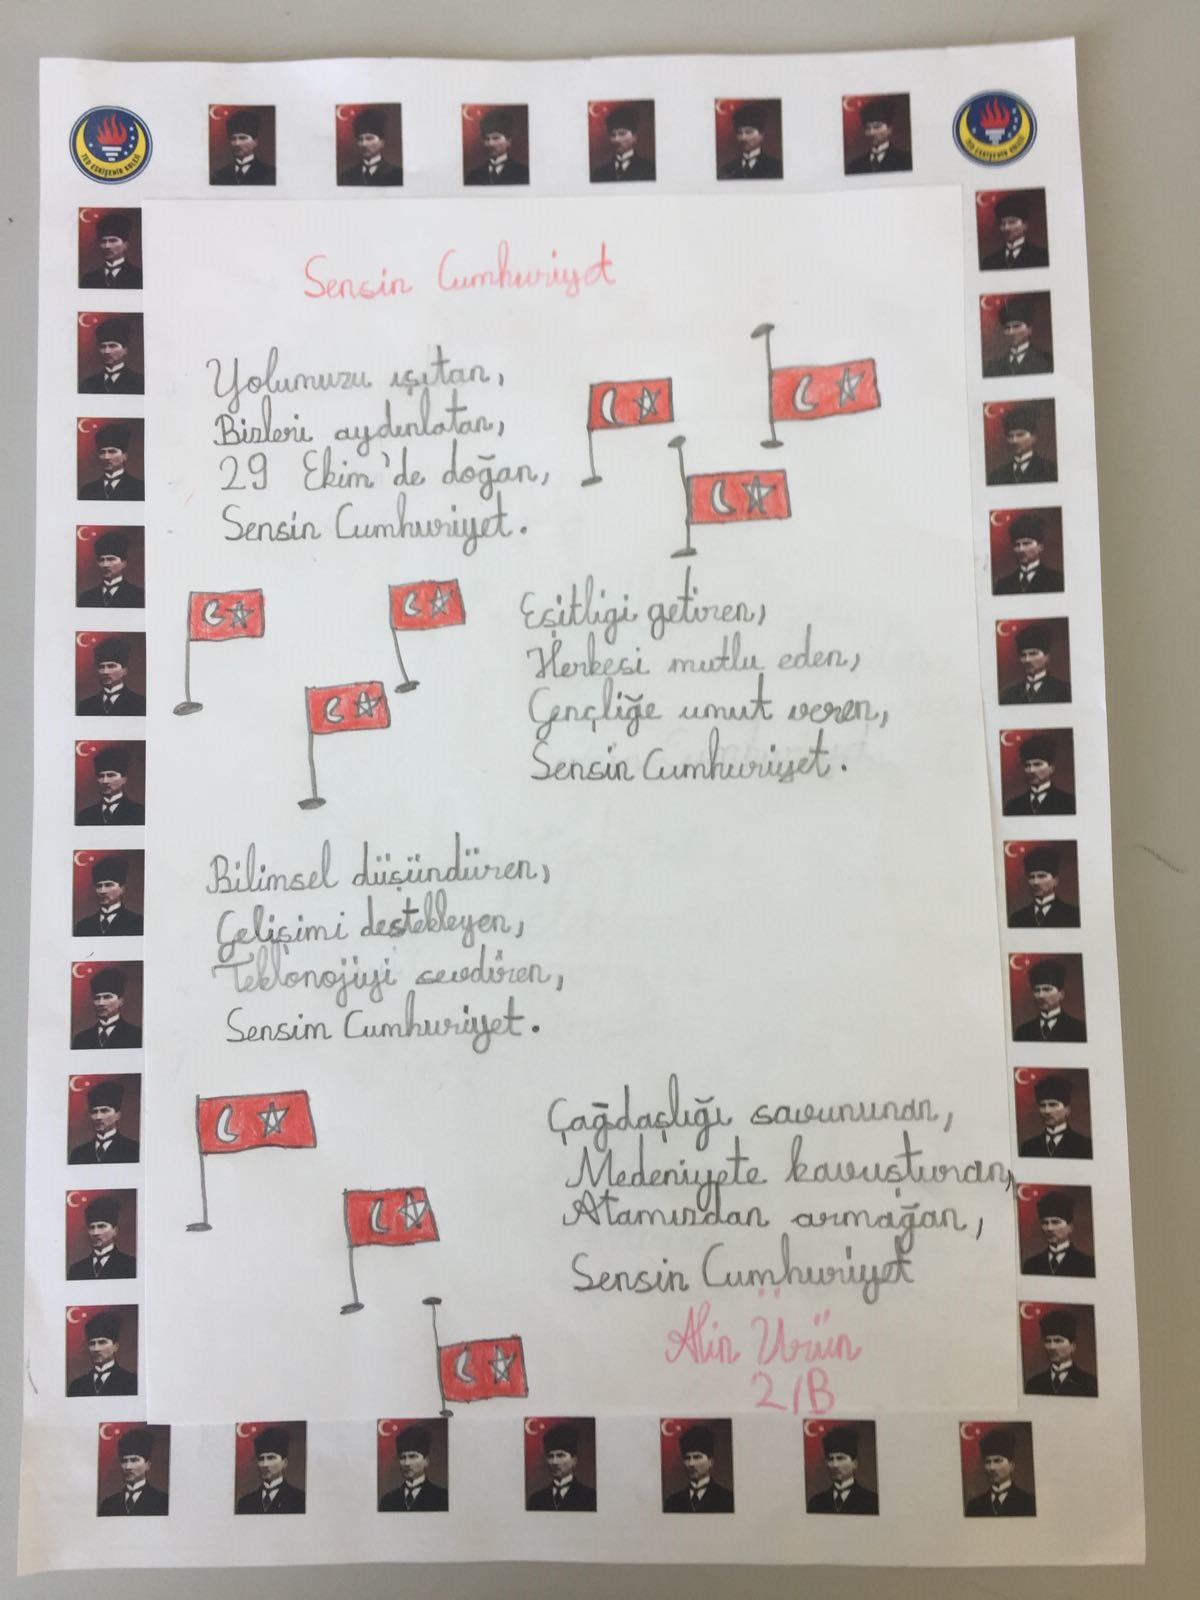 TED ESKİŞEHİR KOLEJİ
TED ESKİŞEHİR KOLEJİ
Sensin Cumhuriyet
Yolumuzu ışıtan,
Bizleri aydınlatan,
29 Ekim'de doğan,
Sensin Cumhuriyet.
Eşitliği getiren,
Herkesi mutlu eden,
Gençliğe umut veren,
Sensin Cumhuriyet.
Bilimsel düşündüren,
Gelişimi destekleyen,
Teklonojiyi sevdiren,
Sensim Cumhuriyet.
Çağdaşlığı savununan,
Medeniyete kavuşturan,
Atamızdan armağan,
Sensin Cumhuriyet
Alin Ürün
2/B